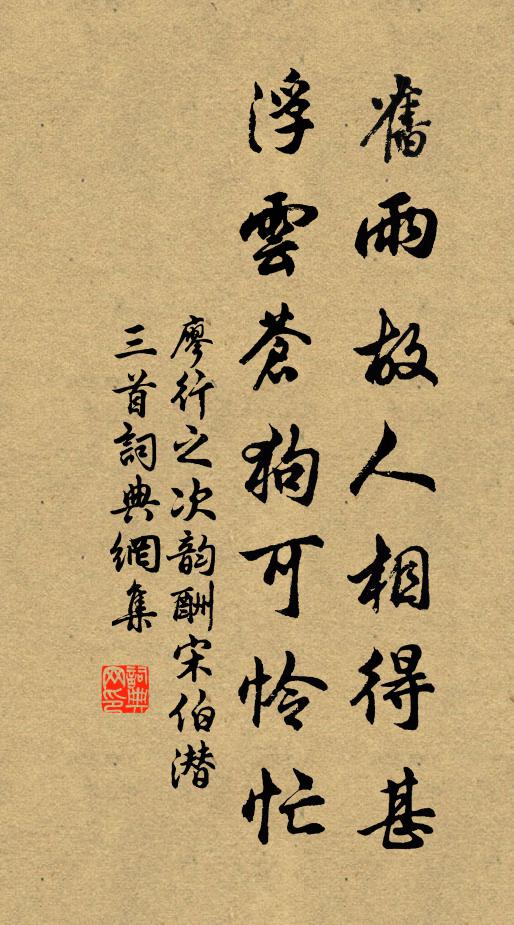 舊雨故人相得甚
浮雲蒼狗可怜忙
廖行之次韵酬宋伯潜
三首詞典網集
詞典
网印